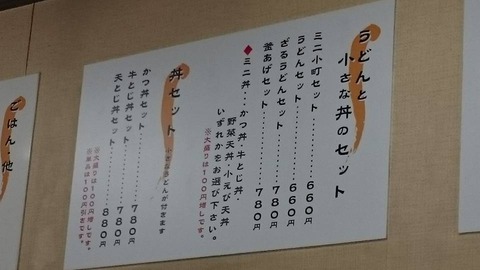 うどんと
小さな丼のセット
ミニ小町セット………660円
うどんセット………660円
ざるうどんセット………780円
釜あげセット………780円
◆ミニ丼…かつ丼・牛とじ丼・
野菜天丼・小えび天丼
いずれかをお選び下さい。
※大盛りは100円増しです。
丼セット 小さなうどんが付きます
かつ丼セット………780円
牛とじ丼セット………780円
天とじ丼セット………880円
※大盛りは100円増しです。
※単品は100円引きです。
ごはん・他